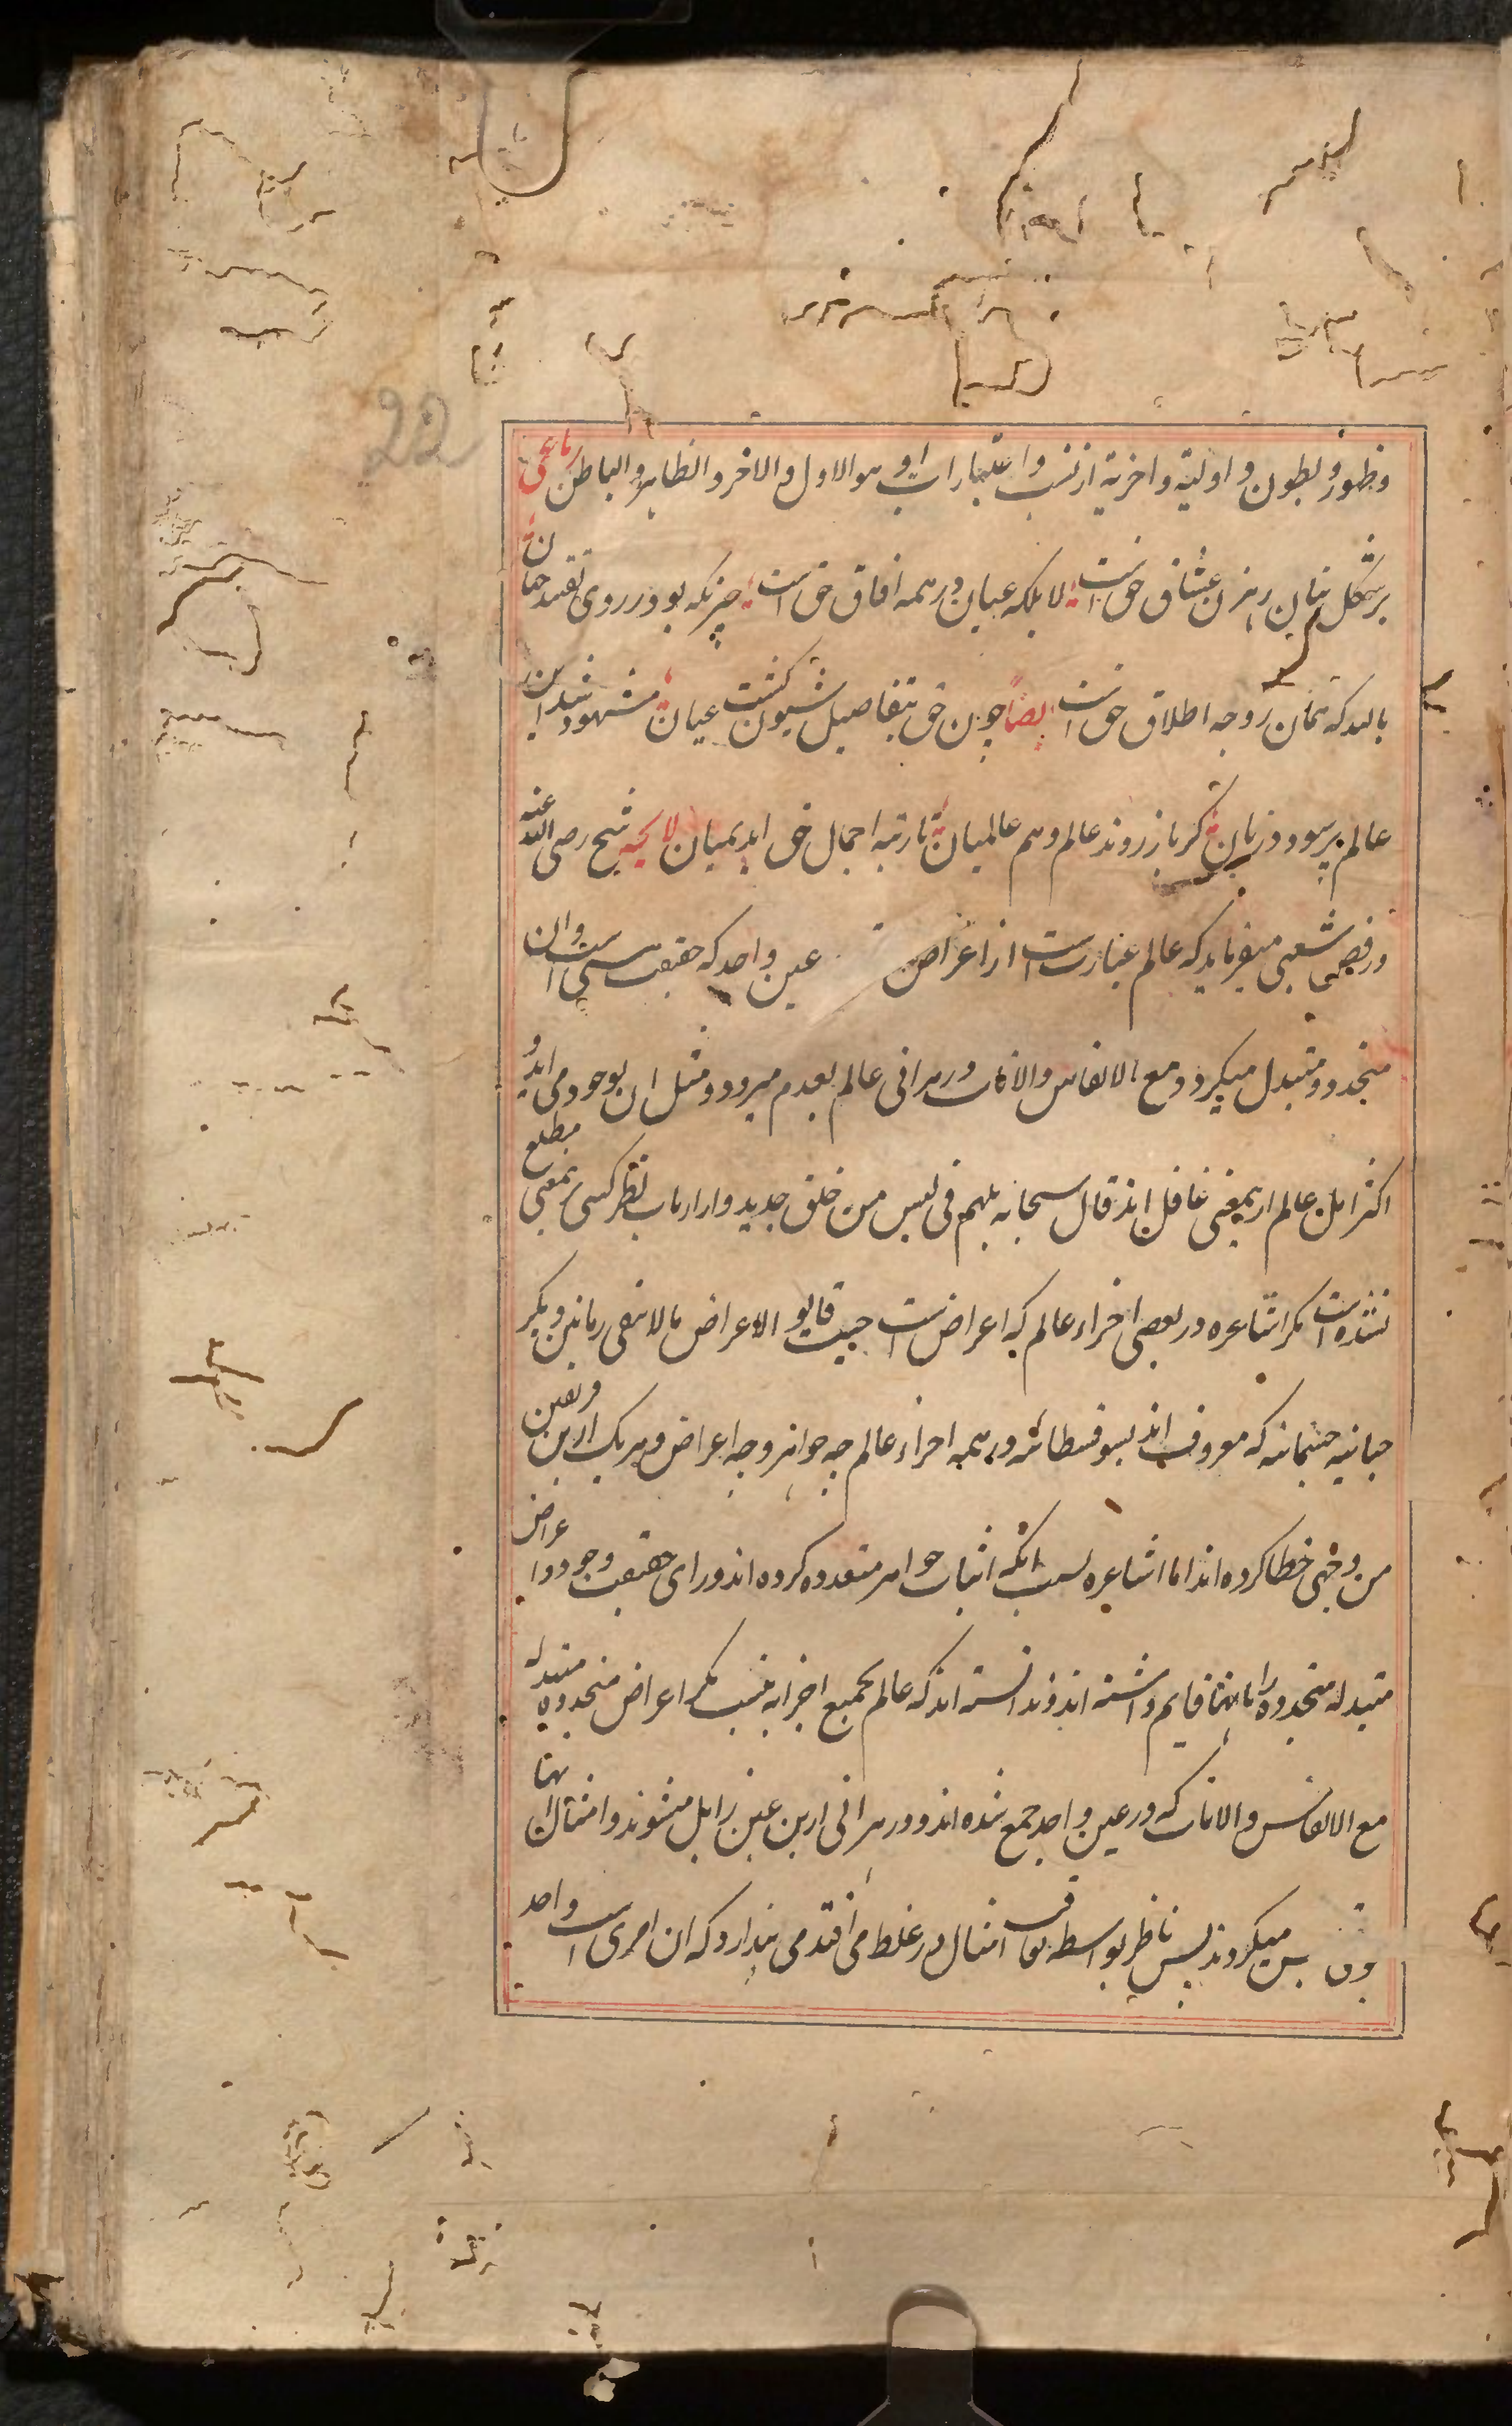 22
وظهور و بطون و اولیة و اخریة از نسب و اعتبارات او هو الاول و الاخر و الظاهر و الباطن رباعی
بر شکل بتان رهزن عشاق حق است لا بلکه عیان در همه افاق حق است چیزیکه بود ز روی تقیید جهان
بالله که همان ز وجه اطلاق حق است ایضاً چون حق بتفاصیل شیون کشت عیان مشهود شد این
عالم پر سود و زیان کر باز روند عالم و هم عالمیان با رتبه اجمال حق اید بمیان لایحه شیخ رضی الله عنه
در فص شعیبی میفرماید که عالم عبارت است از اعراض عین واحد که حقیقت هستی است وان
متجدد و متبدل میکردد مع الانفاس والانات در هر انی عالم بعدم میرود و مثل ان بوجود می اید و
اکثر اهل عالم ازین معنی غافل اند قال سبحانه بلهم فی لبس من خلق جدید و از ارباب نظر کسی برین معنی مطلع
نشده است مکر اشاعره در بعضی اجزاء عالم که اعراض است حیث قالو الاعراض لا یبقی زمانین و مکر
حسبانیه که معروف اند بسوفسطائیه در همه اجزاء عالم چه جواهر و چه اعراض و هر یک ازین فریقین
من وجهی خطا کرده اند اما اشاعره بسبب انکه اثبات جواهر متعدده کرده اند ورای حقیقت وجود و اعراض
متبدله متجدده را بانها قایم داشته اند و ندانسته اند که عالم بجمیع اجزایه نیست مکر اعراض متجدده متبدله
مع الانفاس والانات که در عین واحد جمع شده اند و در هر انی ازین عین زایل میشوند و امثال انها
بس میکردند پس ناظر بواسطه تعاقب امثال در غلط می افتد می پندارد که ان امری است واحد